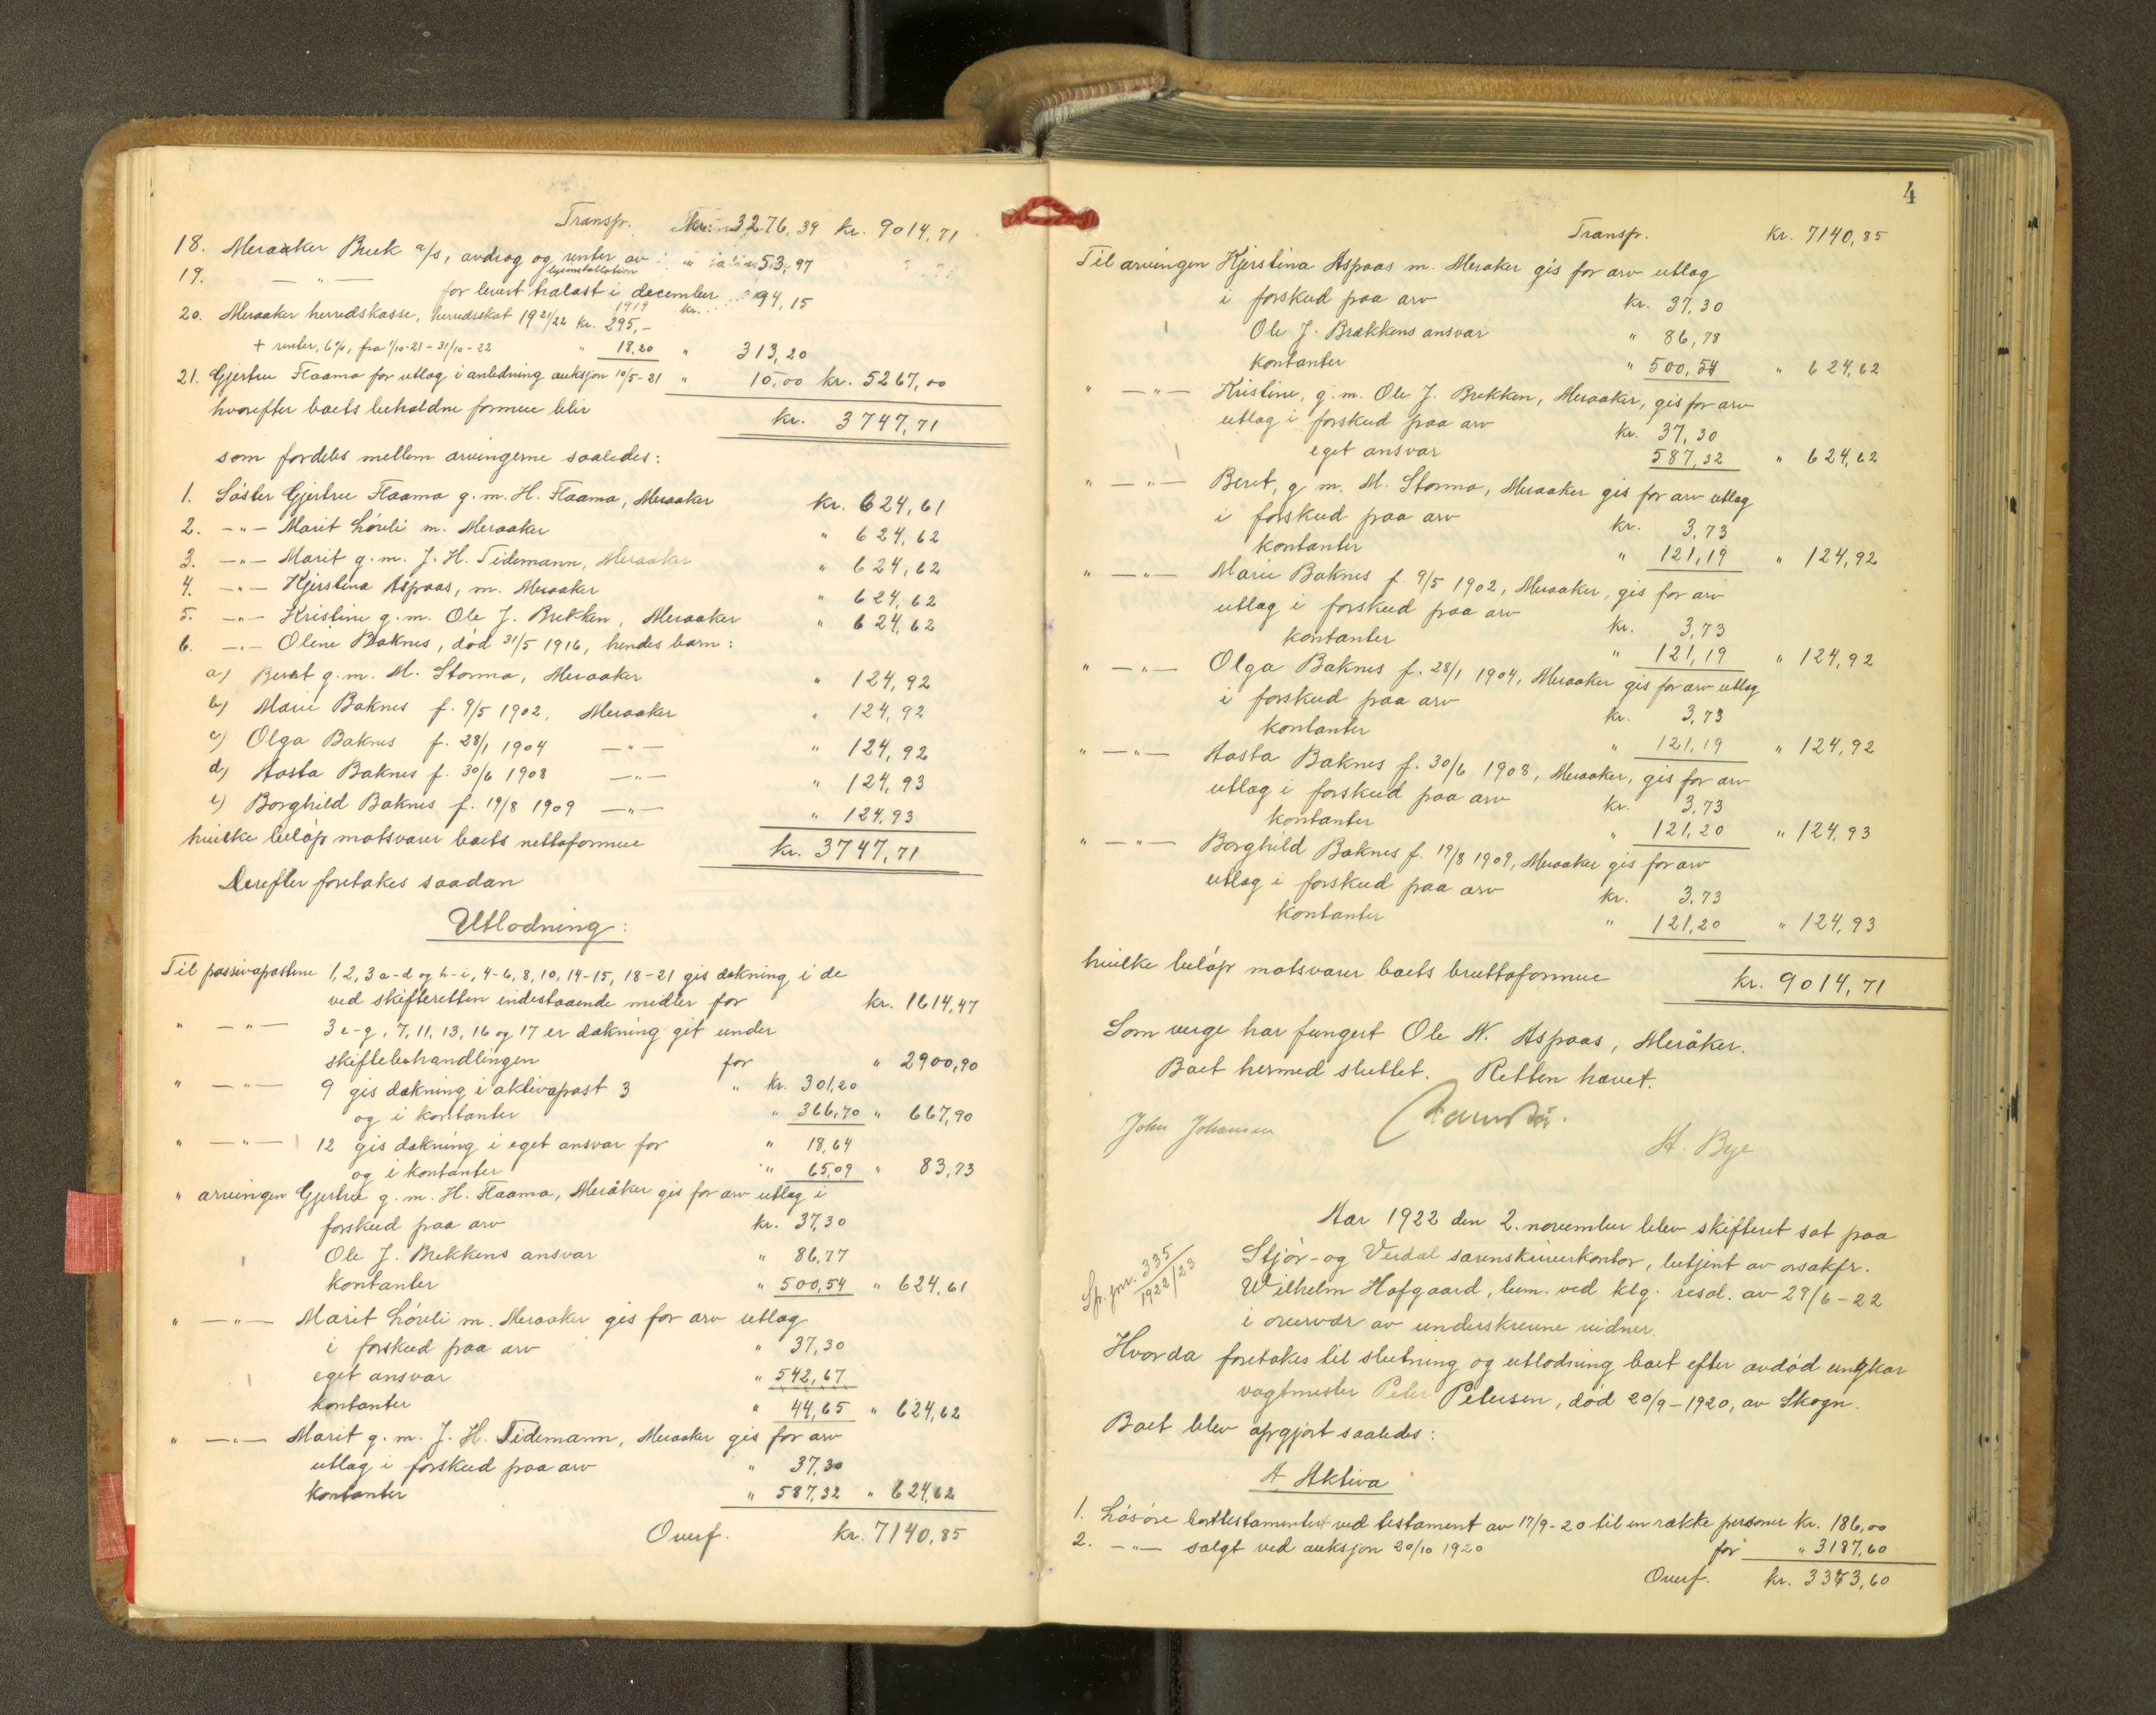 Transp. kr. 3276,39 kr. 9014,71
18. Meraaker Bruk a/s, avdrag og renter av " 53,97
lysinstallation
19. — " — for levert trælast i december " 94,15
1919 kr.
20. Meraaker herredskasse, herredsskat 19 21/22 kr. 295,-
+ renter, 6%, fra 1/10-21 - 31/10-22 " 18,20 " 313,20
21. Gjertru Flaamo for utlag i anledning auksjon 10/5-21 " 10,00 kr. 5267,00
hvorefter boets beholdne formue blir kr. 3747,71
som fordeles mellem arvingerne saaledes:
1. Søster Gjertru Flaamo g.m. H. Flaamo, Meraaker kr. 624,61
2. —"— Marit Løvli m. Meraaker " 624,62
3. —"— Marit g.m. J. H. Tidemann, Meraaker " 624,62
4. —"— Kjerstina Aspaas, m. Meraaker " 624,62
5. —"— Kristine g.m. Ole J. Brekken, Meraaker " 624,62
6. —"— Oline Baknes, død 31/5 1916, hendes barn:
a) Beret g.m. M. Stormo, Meraaker " 124,92
b) Marie Baknes f. 9/5 1902, Meraaker " 124,92
c) Olga Baknes f. 28/1 1904 —"— " 124,92
d) Aasta Baknes f. 30/6 1908 —"— " 124,93
e) Borghild Baknes f. 19/8 1909 —"— " 124,93
hvilke beløp motsvarer boets nettoformue kr. 3747,71
Derefter foretakes saadan
Utlodning:
Til passivapostene 1, 2, 3 a-d og h-i, 4-6, 8, 10, 14-15, 18-21 gis dækning i de
ved skifteretten indestaaende midler for kr. 1614,47
" —"— 3 e-g, 7, 11, 13, 16 og 17 er dækning git under
skiftebehandlingen for " 2900,90
" —"— 9 gis dækning i aktivapost 3 " kr. 301,20
og i kontanter " 366,70 " 667,90
" —"— 12 gis dækning i eget ansvar for " 18,64
og i kontanter " 65,09 " 83,73
" arvingen Gjertru g.m. H. Flaamo, Meråker gis for arv utlag i
forskud paa arv kr. 37,30
Ole J. Brekkens ansvar " 86,77
kontanter " 500,54 " 624,61
" —"— Marit Løvli m. Meraaker gis for arv utlag
i forskud paa arv " 37,30
eget ansvar " 542,67
kontanter " 44,65 " 624,62
" —"— Marit g.m. J. H. Tidemann, Meraaker gis for arv
utlag i forskud paa arv " 37,30
kontanter " 587,32 " 624,62
Overf. kr. 7140,85
4
Transp. kr. 7140,85
Til arvingen Kjerstina Aspaas m. Meraker gis for arv utlag
i forskud paa arv kr. 37,30
Ole J. Brækkens ansvar " 86,78
kontanter " 500,54 " 624,62
" —"— Kristine, g.m. Ole J. Brekken, Meraaker, gis for arv
utlag i forskud paa arv kr. 37,30
eget ansvar 587,32 " 624,62
" —"— Beret, g.m. M. Stormo, Meraaker gis for arv utlag
i forskud paa arv kr. 3,73
kontanter " 121,19 " 124,92
" —"— Marie Baknes f. 9/5 1902, Meraaker, gis for arv
utlag i forskud paa arv kr. 3,73
kontanter " 121,19 " 124,92
" —"— Olga Baknes f. 28/1 1904, Meraaker gis for arv utlag
i forskud paa arv kr. 3,73
kontanter " 121,19 " 124,92
" —"— Aasta Baknes f. 30/6 1908, Meraaker, gis for arv
utlag i forskud paa arv kr. 3,73
kontanter " 121,20 " 124,93
" —"— Borghild Baknes f. 19/8 1909, Meraaker gis for arv
utlag i forskud paa arv kr. 3,73
kontanter " 121,20 " 124,93
hvilke beløp motsvarer boets bruttoformue kr. 9014,71
Som verge har fungert Ole N. Aspaas, Meråker.
Boet hermed sluttet. Retten hævet.
John Johansen
H. Bye
Aar 1922 den 2. november blev skifteret sat paa
Stjør- og Verdal sorenskriverkontor, betjent av orsakfr.
Wilhelm Hofgaard, bem. ved klg. resol. av 29/6-22
i overvær av underskrevne vidner.
Sp. jnr. 335
1922/23
Hvorda foretakes til slutning og utlodning boet efter avdød ungkar
vagtmester Peter Petersen, død 20/9-1920, av Skogn.
Boet blev opgjort saaledes:
A Aktiva
1. Løsøre borttestamentert ved testament av 17/9-20 til en række personer kr. 186,00
2. —"— solgt ved auksjon 20/10 1920 for " 3187,60
Overf. kr. 3373,60